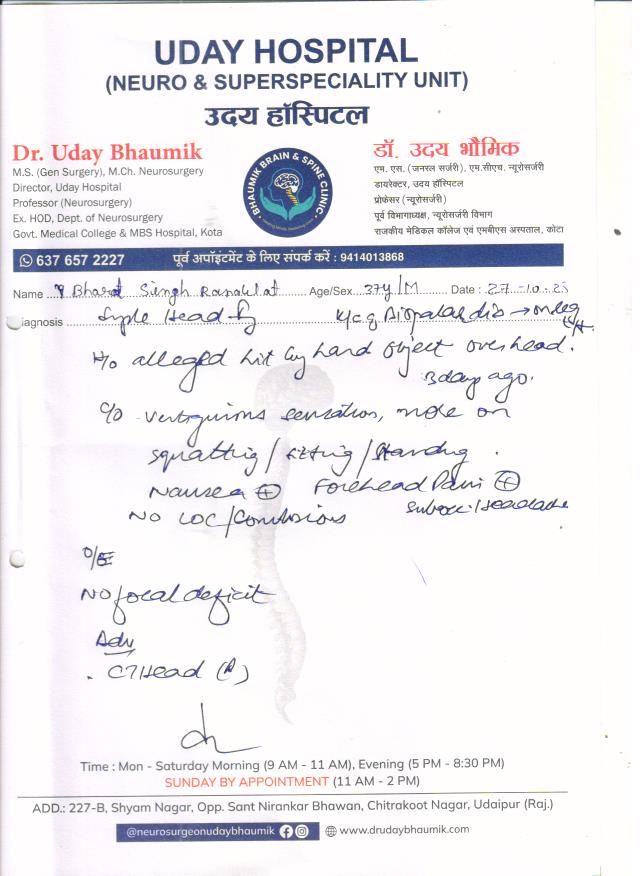 UDAY HOSPITAL
(NEURO & SUPERSPECIALITY UNIT)
उदय हॉस्पिटल
Dr. Uday Bhaumik
M.S. (Gen Surgery), M.Ch. Neurosurgery
Director, Uday Hospital
Professor (Neurosurgery)
Ex. HOD, Dept. of Neurosurgery
Govt. Medical College & MBS Hospital, Kota
BHAUMIK BRAIN & SPINE CLINIC
डॉ. उदय भौमिक
एम. एस. (जनरल सर्जरी), एम.सीएच. न्यूरोसर्जरी
डायरेक्टर, उदय हॉस्पिटल
प्रोफेसर (न्यूरोसर्जरी)
पूर्व विभागाध्यक्ष, न्यूरोसर्जरी विभाग
राजकीय मेडिकल कॉलेज एवं एमबीएस अस्पताल, कोटा
637 657 2227 पूर्व अपॉइंटमेंट के लिए संपर्क करें : 9414013868
Name Bharat Singh Ranawat Age/Sex 37Y/M Date : 27-10-25
iagnosis Head K/c/o
H/o alleged hit by hard object overhead.
3 day ago.
C/o sensation, more on
squatting / sitting / standing.
Nausea ⊕ Forehead Pain ⊕
NO LOC/
O/E
NO focal deficit
Adv
. CT Head
Time : Mon - Saturday Morning (9 AM - 11 AM), Evening (5 PM - 8:30 PM)
SUNDAY BY APPOINTMENT (11 AM - 2 PM)
ADD.: 227-B, Shyam Nagar, Opp. Sant Nirankar Bhawan, Chitrakoot Nagar, Udaipur (Raj.)
@neurosurgeonudaybhaumik www.drudaybhaumik.com